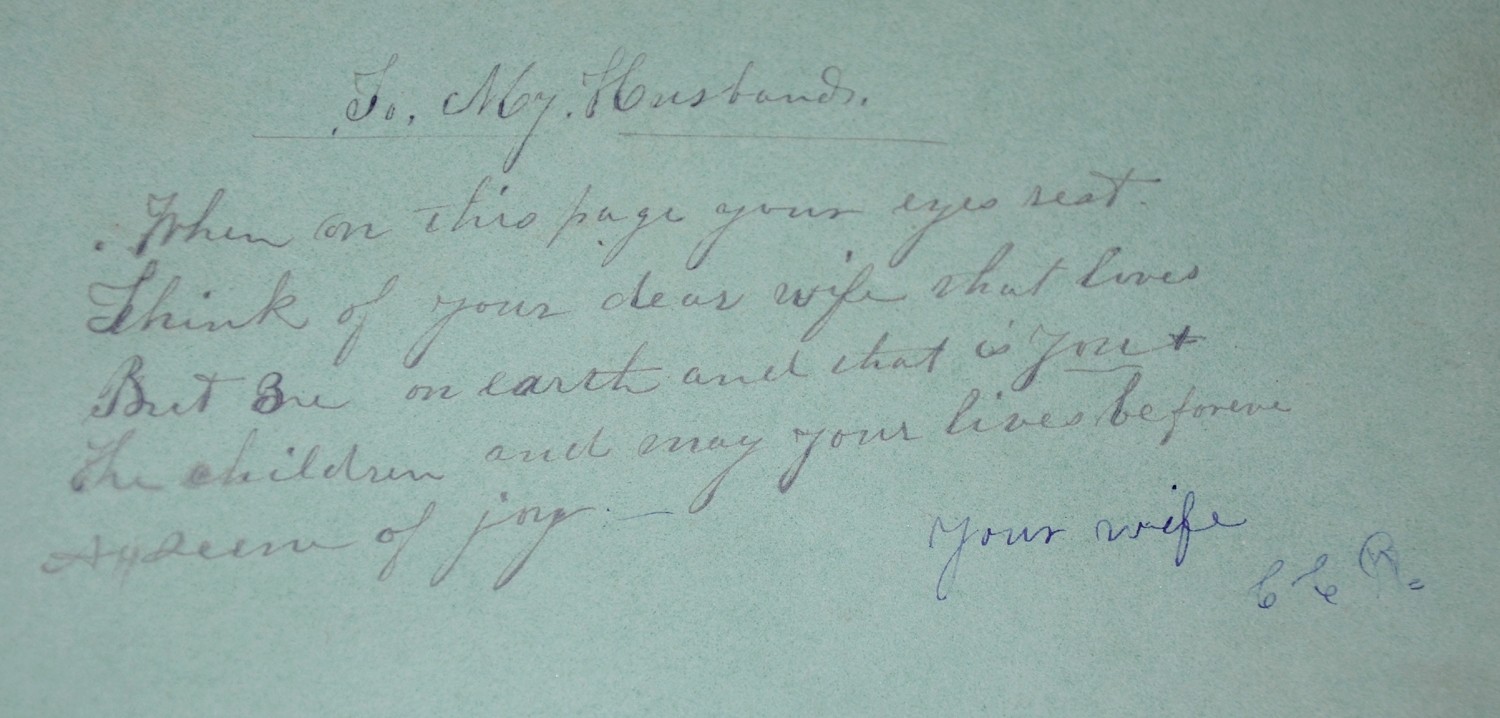 To, My. Husband.
When on this page your eyes rest.
Think of your dear wife that loves
But 3 on earth and that is you +
The children and may your lives be foreve
of joy. —
your wife
C C R =